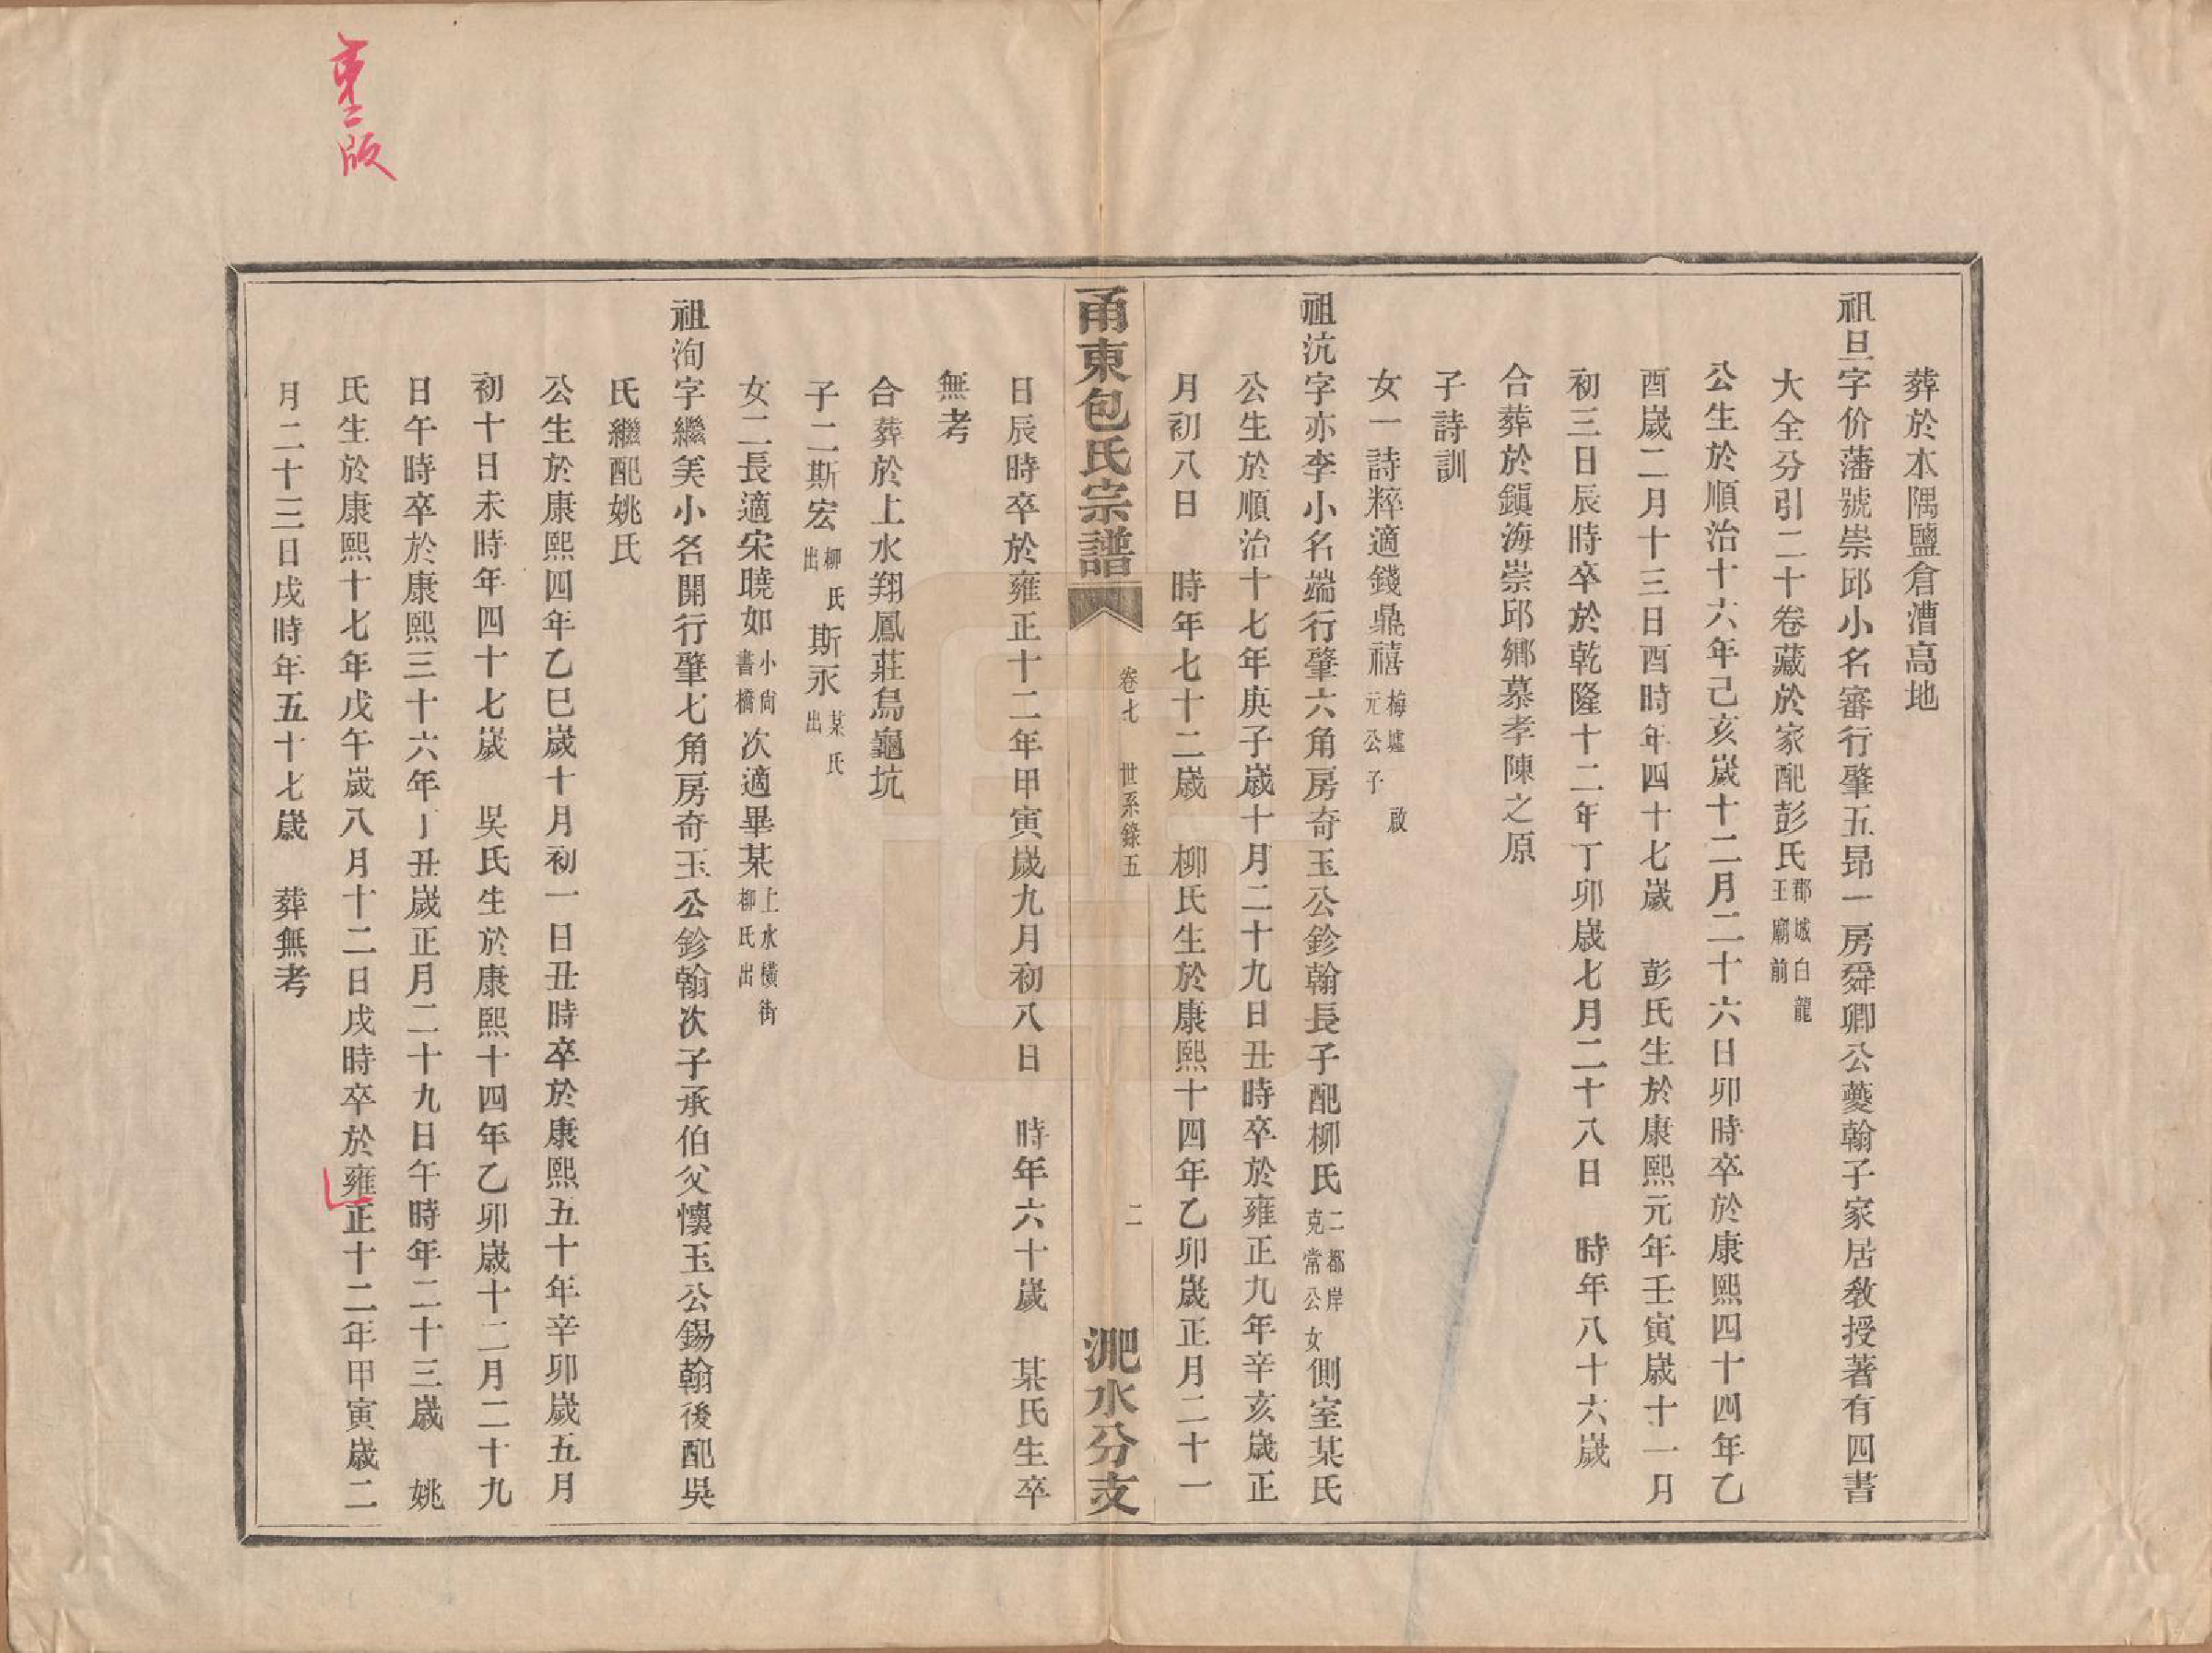 葬於本隅鹽倉漕高地
祖旦字价藩號崇邱小名審行肇五昻一房舜卿公蘷翰子家居敎授著有四書
大全分引二十卷藏於家配彭氏郡城白龍王廟前
公生於順治十六年己亥歲十二月二十六日卯時卒於康熙四十四年乙
酉歲二月十三日酉時年四十七歲　彭氏生於康熙元年壬寅歲十一月
初三日辰時卒於乾隆十二年丁卯歲七月二十八日　時年八十六歲
合葬於鎭海崇邱鄉慕孝陳之原
子詩訓
女一詩粹適錢鼎禧梅墟啟元公子
祖沆字亦李小名端行肇六角房奇玉公鉁翰長子配柳氏二都岸克常公女側室某氏
公生於順治十七年庚子歲十月二十九日丑時卒於雍正九年辛亥歲正
月初八日　時年七十二歲　柳氏生於康熙十四年乙卯歲正月二十一
甬東包氏宗譜
卷七　世系錄五
二
淝水分支
日辰時卒於雍正十二年甲寅歲九月初八日　時年六十歲　某氏生卒
無考
合葬於上水翔鳳莊烏龜坑
子二斯宏柳氏出斯永某氏出
女二長適宋曉如小尙書橋次適畢某上水橫街柳氏出
祖洵字繼美小名開行肇七角房奇玉公鉁翰次子承伯父懷玉公錫翰後配吳
氏繼配姚氏
公生於康熙四年乙巳歲十月初一日丑時卒於康熙五十年辛卯歲五月
初十日未時年四十七歲　吳氏生於康熙十四年乙卯歲十二月二十九
日午時卒於康熙三十六年丁丑歲正月二十九日午時年二十三歲　姚
氏生於康熙十七年戊午歲八月十二日戌時卒於雍正十二年甲寅歲二
月二十三日戌時年五十七歲　葬無考